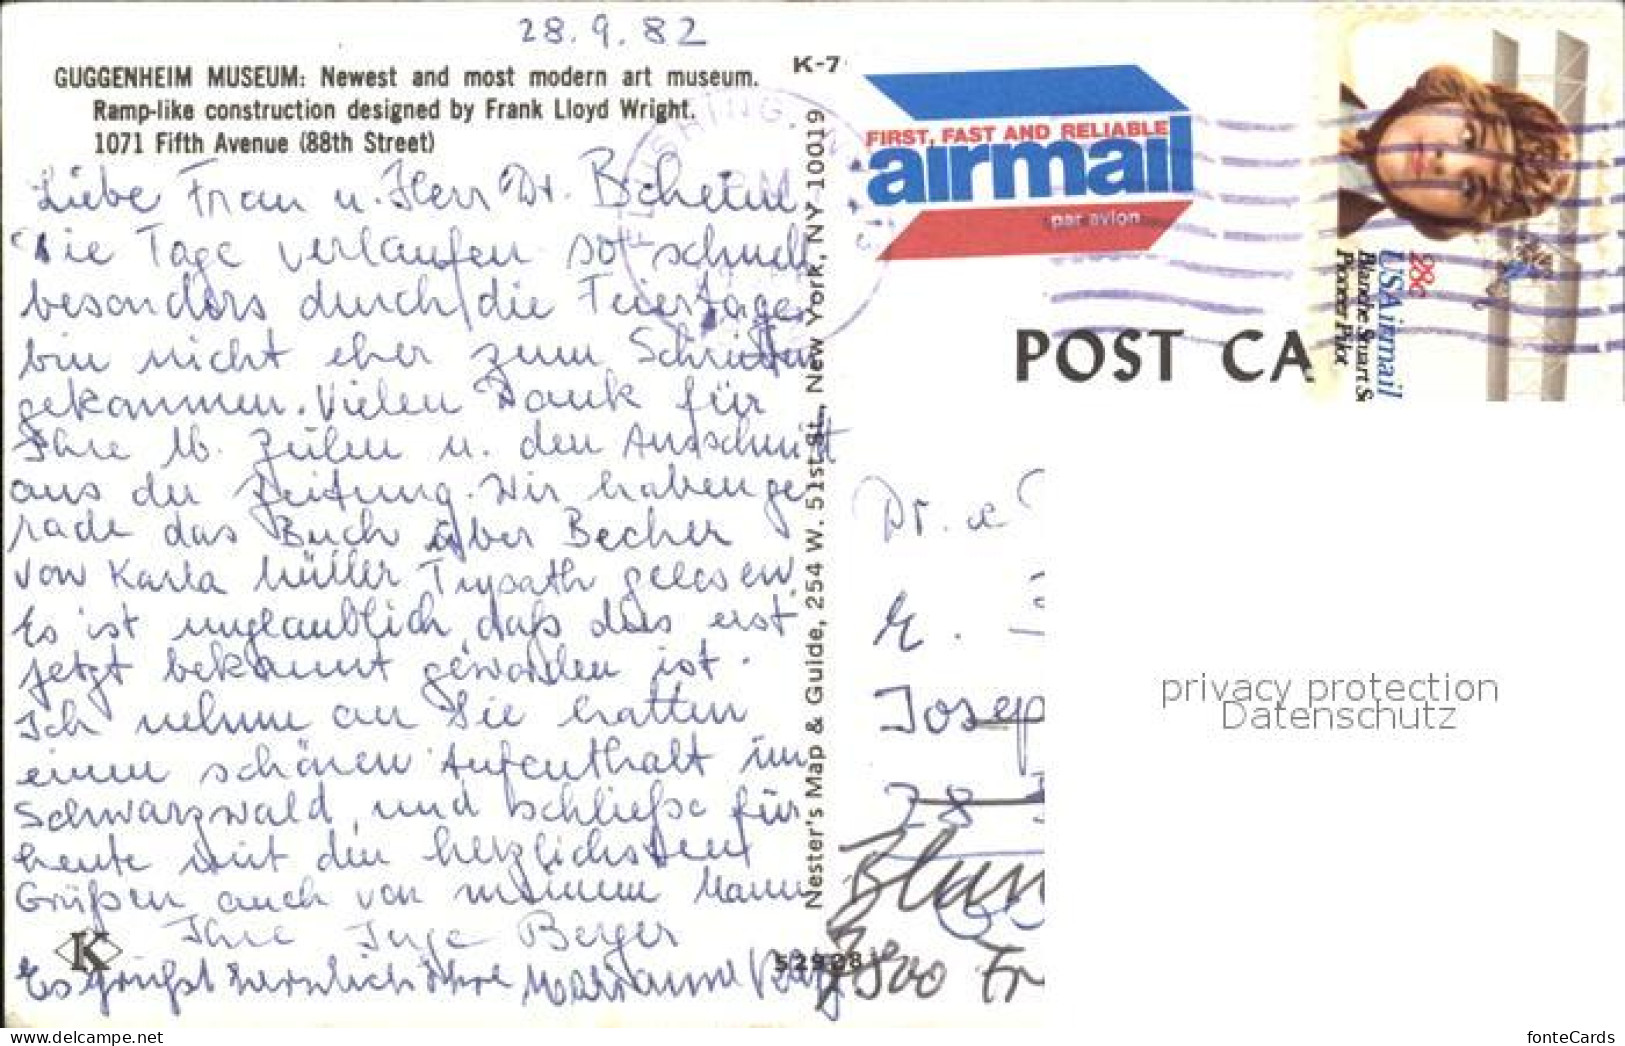 28.9.82
GUGGENHEIM MUSEUM: Newest and most modern art museum.
Ramp-like construction designed by Frank Lloyd Wright.
1071 Fifth Avenue (88th Street)
K-7
Liebe Frau u. Herr Dr.
die Tage verlaufen so schnell
besonders durch die Feiertage
bin nicht eher zum Schreiben
gekommen. Vielen Dank für
Ihre lb. Zeilen u. den Ausschnitt
aus der Zeitung. Wir haben ge
rade das Buch über Becher
von Karla Müller gelesen
Es ist unglaublich, daß das erst
jetzt bekannt geworden ist.
Ich nehme an Sie hatten
einen schönen Aufenthalt im
Schwarzwald, und schließe für
heute mit den herzlichsten
Grüßen auch von meinem Mann
Ihre Inge Berger
Es grüßt herzlich Ihre Marianne
K
52928
Nester's Map & Guide, 254 W. 51st St., New York, NY 10019
FIRST, FAST AND RELIABLE
airmail
par avion
28c
USAirmail
Blanche Stuart S
Pioneer Pilot
POST CA
Dr.
Josep
28
7800 Fr
privacy protection
Datenschutz
fonteCards